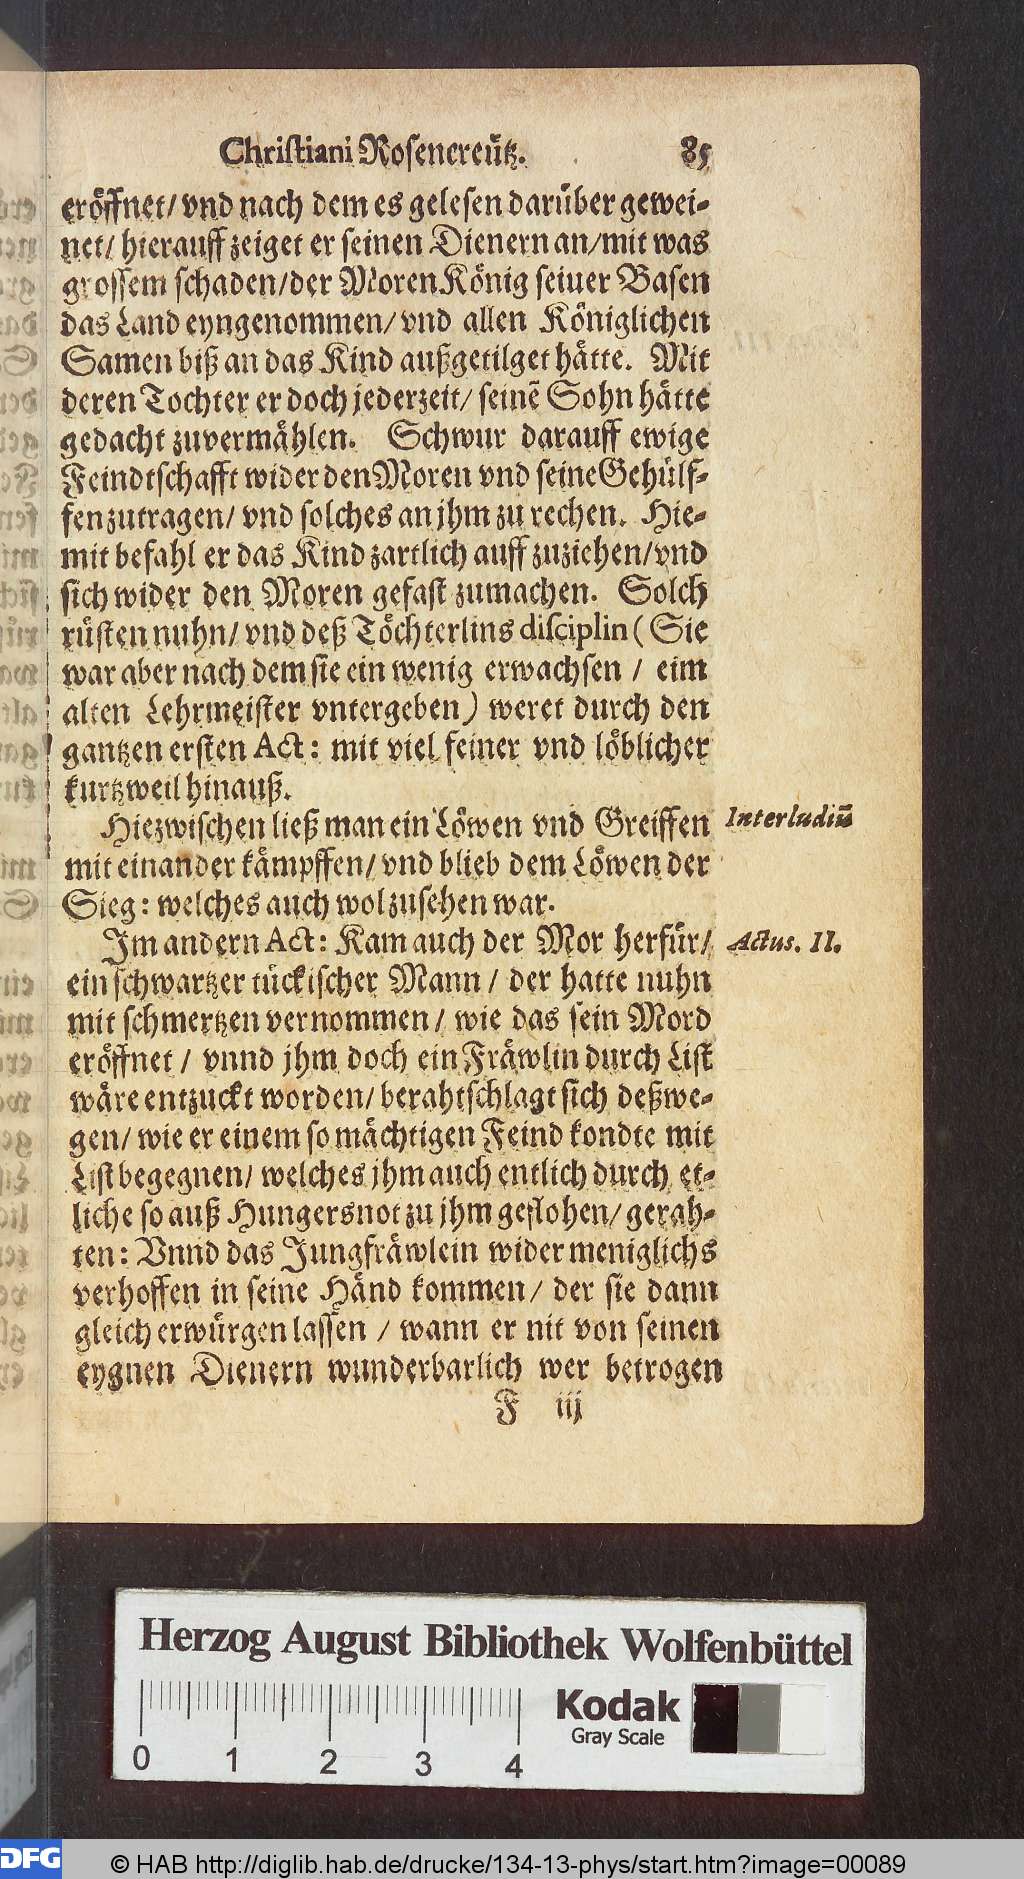 Christiani Rosencreütz. 85
eröffnet/ vnd nach dem es gelesen darüber gewei-
net/ hierauff zeiget er seinen Dienern an/ mit was
grossem schaden/ der Moren König seiuer Basen
das Land eyngenommen/ vnd allen Königlichen
Samen biß an das Kind außgetilget hätte. Mit
deren Tochter er doch jederzeit/ seinẽ Sohn hätte
gedacht zuvermählen. Schwur darauff ewige
Feindtschafft wider den Moren vnd seine Gehülf-
fen zutragen/ vnd solches an jhm zu rechen. Hie-
mit befahl er das Kind zartlich auff zuziehen/ vnd
sich wider den Moren gefast zumachen. Solch
rüsten nuhn/ vnd deß Töchterlins disciplin (Sie
war aber nach dem sie ein wenig erwachsen / eim
alten Lehrmeister vntergeben) weret durch den
gantzen ersten Act: mit viel feiner vnd löblicher
kurtzweil hinauß.
Hiezwischen ließ man ein Löwen vnd Greiffen
Interludiũ
mit einander kämpffen/ vnd blieb dem Löwen der
Sieg: welches auch wol zusehen war.
Im andern Act: Kam auch der Mor herfür/
Actus. II.
ein schwartzer tückischer Mann / der hatte nuhn
mit schmertzen vernommen / wie das sein Mord
eröffnet / vnnd jhm doch ein Fräwlin durch List
wäre entzuckt worden/ berahtschlagt sich deßwe-
gen/ wie er einem so mächtigen Feind kondte mit
List begegnen/ welches jhm auch entlich durch et-
liche so auß Hungersnot zu jhm geflohen/ gerah-
ten: Vnnd das Jungfräwlein wider meniglichs
verhoffen in seine Händ kommen/ der sie dann
gleich erwürgen lassen / wann er nit von seinen
eygnen Dienern wunderbarlich wer betrogen
F iij
Herzog August Bibliothek Wolfenbüttel
Kodak
Gray Scale
0 1 2 3 4
DFG
© HAB http://diglib.hab.de/drucke/134-13-phys/start.htm?image=00089